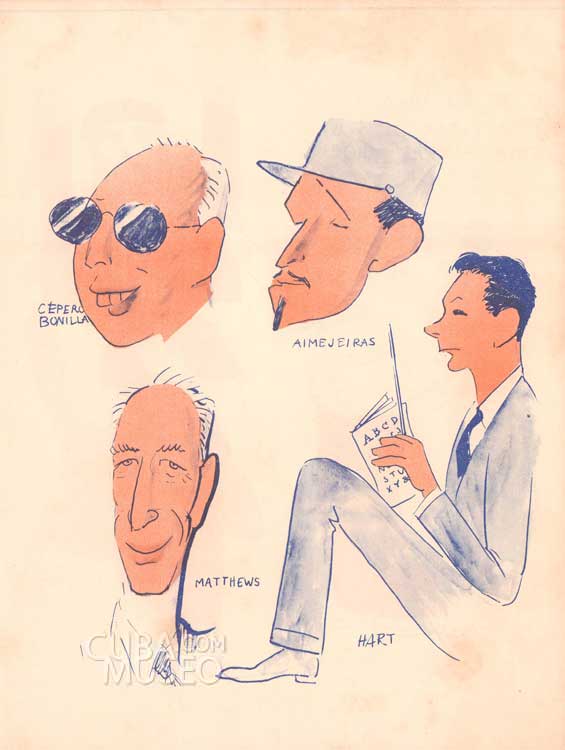 CÉPERO
BONILLA
AIMEJEIRAS
ABCD
STU
XYZ
MATTHEWS
HART
CUBA
.COM
MUSEO